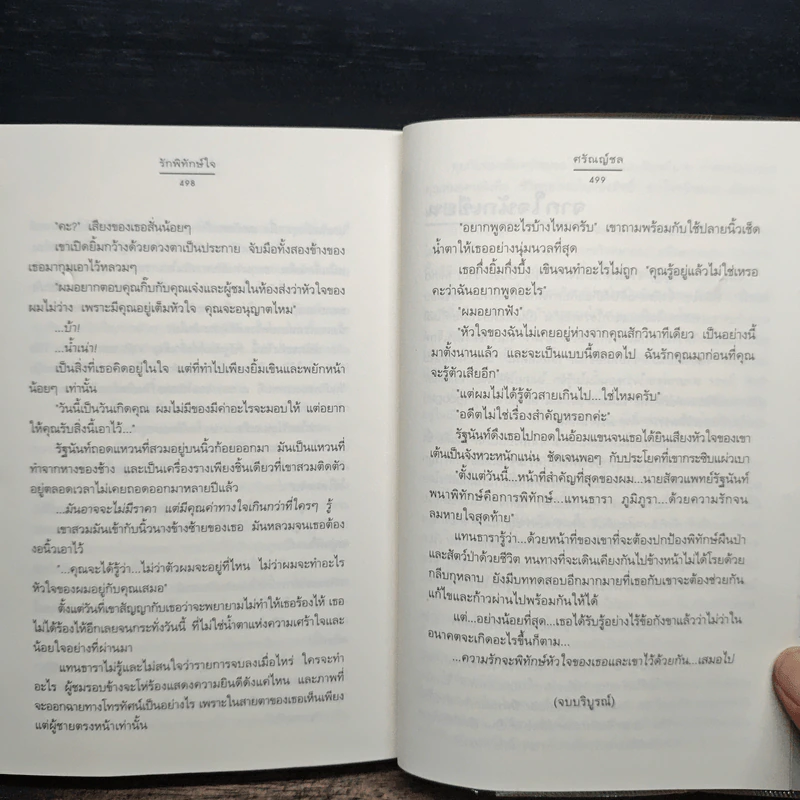 รักพิทักษ์ใจ
498
"คะ?" เสียงของเธอสั่นน้อยๆ
เขาเปิดยิ้มกว้างด้วยดวงตาเป็นประกาย จับมือทั้งสองข้างของ
เธอมากุมเอาไว้หลวมๆ
"ผมอยากตอบคุณกิ๊บกับคุณเจ๋งและผู้ชมในห้องส่งว่าหัวใจของ
ผมไม่ว่าง เพราะมีคุณอยู่เต็มหัวใจ คุณจะอนุญาตไหม"
...บ้า!
...น้ำเน่า!
เป็นสิ่งที่เธอคิดอยู่ในใจ แต่ที่ทำไปเพียงยิ้มเขินและพยักหน้า
น้อยๆ เท่านั้น
"วันนี้เป็นวันเกิดคุณ ผมไม่มีของมีค่าอะไรจะมอบให้ แต่อยาก
ให้คุณรับสิ่งนี้เอาไว้..."
รัฐนันท์ถอดแหวนที่สวมอยู่บนนิ้วก้อยออกมา มันเป็นแหวนที่
ทำจากหางของช้าง และเป็นเครื่องรางเพียงชิ้นเดียวที่เขาสวมติดตัว
อยู่ตลอดเวลาไม่เคยถอดออกมาหลายปีแล้ว
...มันอาจจะไม่มีราคา แต่มีคุณค่าทางใจเกินกว่าที่ใครๆ รู้
เขาสวมมันเข้ากับนิ้วนางข้างซ้ายของเธอ มันหลวมจนเธอต้อง
งอนิ้วเอาไว้
"...คุณจะได้รู้ว่า...ไม่ว่าตัวผมจะอยู่ที่ไหน ไม่ว่าผมจะทำอะไร
หัวใจของผมอยู่กับคุณเสมอ"
ตั้งแต่วันที่เขาสัญญากับเธอว่าจะพยายามไม่ทำให้เธอร้องไห้ เธอ
ไม่ได้ร้องไห้อีกเลยจนกระทั่งวันนี้ ที่ไม่ใช่น้ำตาแห่งความเศร้าใจและ
น้อยใจอย่างที่ผ่านมา
แทนธาราไม่รู้และไม่สนใจว่ารายการจบลงเมื่อไหร่ ใครจะทำ
อะไร ผู้ชมรอบข้างจะโห่ร้องแสดงความยินดีดังแค่ไหน และภาพที่
จะออกฉายทางโทรทัศน์เป็นอย่างไร เพราะในสายตาของเธอเห็นเพียง
แต่ผู้ชายตรงหน้าเท่านั้น
ศรัณญ์ชล
499
"อยากพูดอะไรบ้างไหมครับ" เขาถามพร้อมกับใช้ปลายนิ้วเช็ด
น้ำตาให้เธออย่างนุ่มนวลที่สุด
เธอกึ่งยิ้มกึ่งบึ้ง เขินจนทำอะไรไม่ถูก "คุณรู้อยู่แล้วไม่ใช่เหรอ
คะว่าฉันอยากพูดอะไร"
"ผมอยากฟัง"
"หัวใจของฉันไม่เคยอยู่ห่างจากคุณสักวินาทีเดียว เป็นอย่างนี้
มาตั้งนานแล้ว และจะเป็นแบบนี้ตลอดไป ฉันรักคุณมาก่อนที่คุณ
จะรู้ตัวเสียอีก"
"แต่ผมไม่ได้รู้ตัวสายเกินไป...ใช่ไหมครับ"
"อดีตไม่ใช่เรื่องสำคัญหรอกค่ะ"
รัฐนันท์ดึงเธอไปกอดในอ้อมแขนจนเธอได้ยินเสียงหัวใจของเขา
เต้นเป็นจังหวะหนักแน่น ชัดเจนพอๆ กับประโยคที่เขากระซิบแผ่วเบา
"ตั้งแต่วันนี้...หน้าที่สำคัญที่สุดของผม...นายสัตวแพทย์รัฐนันท์
พนาพิทักษ์คือการพิทักษ์...แทนธารา ภูมิภูรา...ด้วยความรักจน
ลมหายใจสุดท้าย"
แทนธารารู้ว่า...ด้วยหน้าที่ของเขาที่จะต้องปกป้องพิทักษ์ผืนป่า
และสัตว์ป่าด้วยชีวิต หนทางที่จะเดินเคียงกันไปข้างหน้าไม่ได้โรยด้วย
กลีบกุหลาบ ยังมีบททดสอบอีกมากมายที่เธอกับเขาจะต้องช่วยกัน
แก้ไขและก้าวผ่านไปพร้อมกันให้ได้
แต่...อย่างน้อยที่สุด...เธอได้รับรู้อย่างไร้ข้อกังขาแล้วว่าไม่ว่าใน
อนาคตจะเกิดอะไรขึ้นก็ตาม...
...ความรักจะพิทักษ์หัวใจของเธอและเขาไว้ด้วยกัน...เสมอไป
(จบบริบูรณ์)